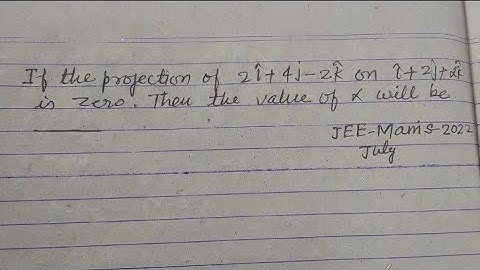 If the projection of 2î+4ĵ-2k̂ on î+2ĵ+αk̂
is zero. Then the value of α will be
JEE-Mains-2022
July